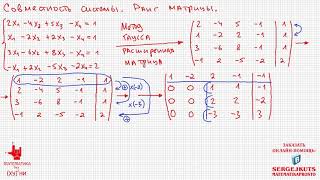 Совместность системы. Ранг матрицы.
2x₁ - 4x₂ + 5x₃ - x₄ = 1
x₁ - 2x₂ + 2x₃ - x₄ = 1
3x₁ - 6x₂ + 8x₃ - x₄ = 1
-x₁ + 2x₂ - 5x₃ - 2x₄ = 2
Метод
Гаусса
Расширенная
матрица
2 -4 5 -1 | 1
1 -2 2 -1 | 1
3 -6 8 -1 | 1
-1 2 -5 -2 | 2
1 -2 2 -1 | 1
2 -4 5 -1 | 1
3 -6 8 -1 | 1
-1 2 -5 -2 | 2
x(-2)
x(-3)
1 -2 2 -1 | 1
0 0 1 1 | -1
0 0 2 2 | -2
0 0 -3 -3 | 3
МАТЕМАТИКА
ЗАКАЗАТЬ
ОНЛАЙН-ПОМОЩЬ:
SERGEJKUTS
МАТЕМАТИКАПРОСТО